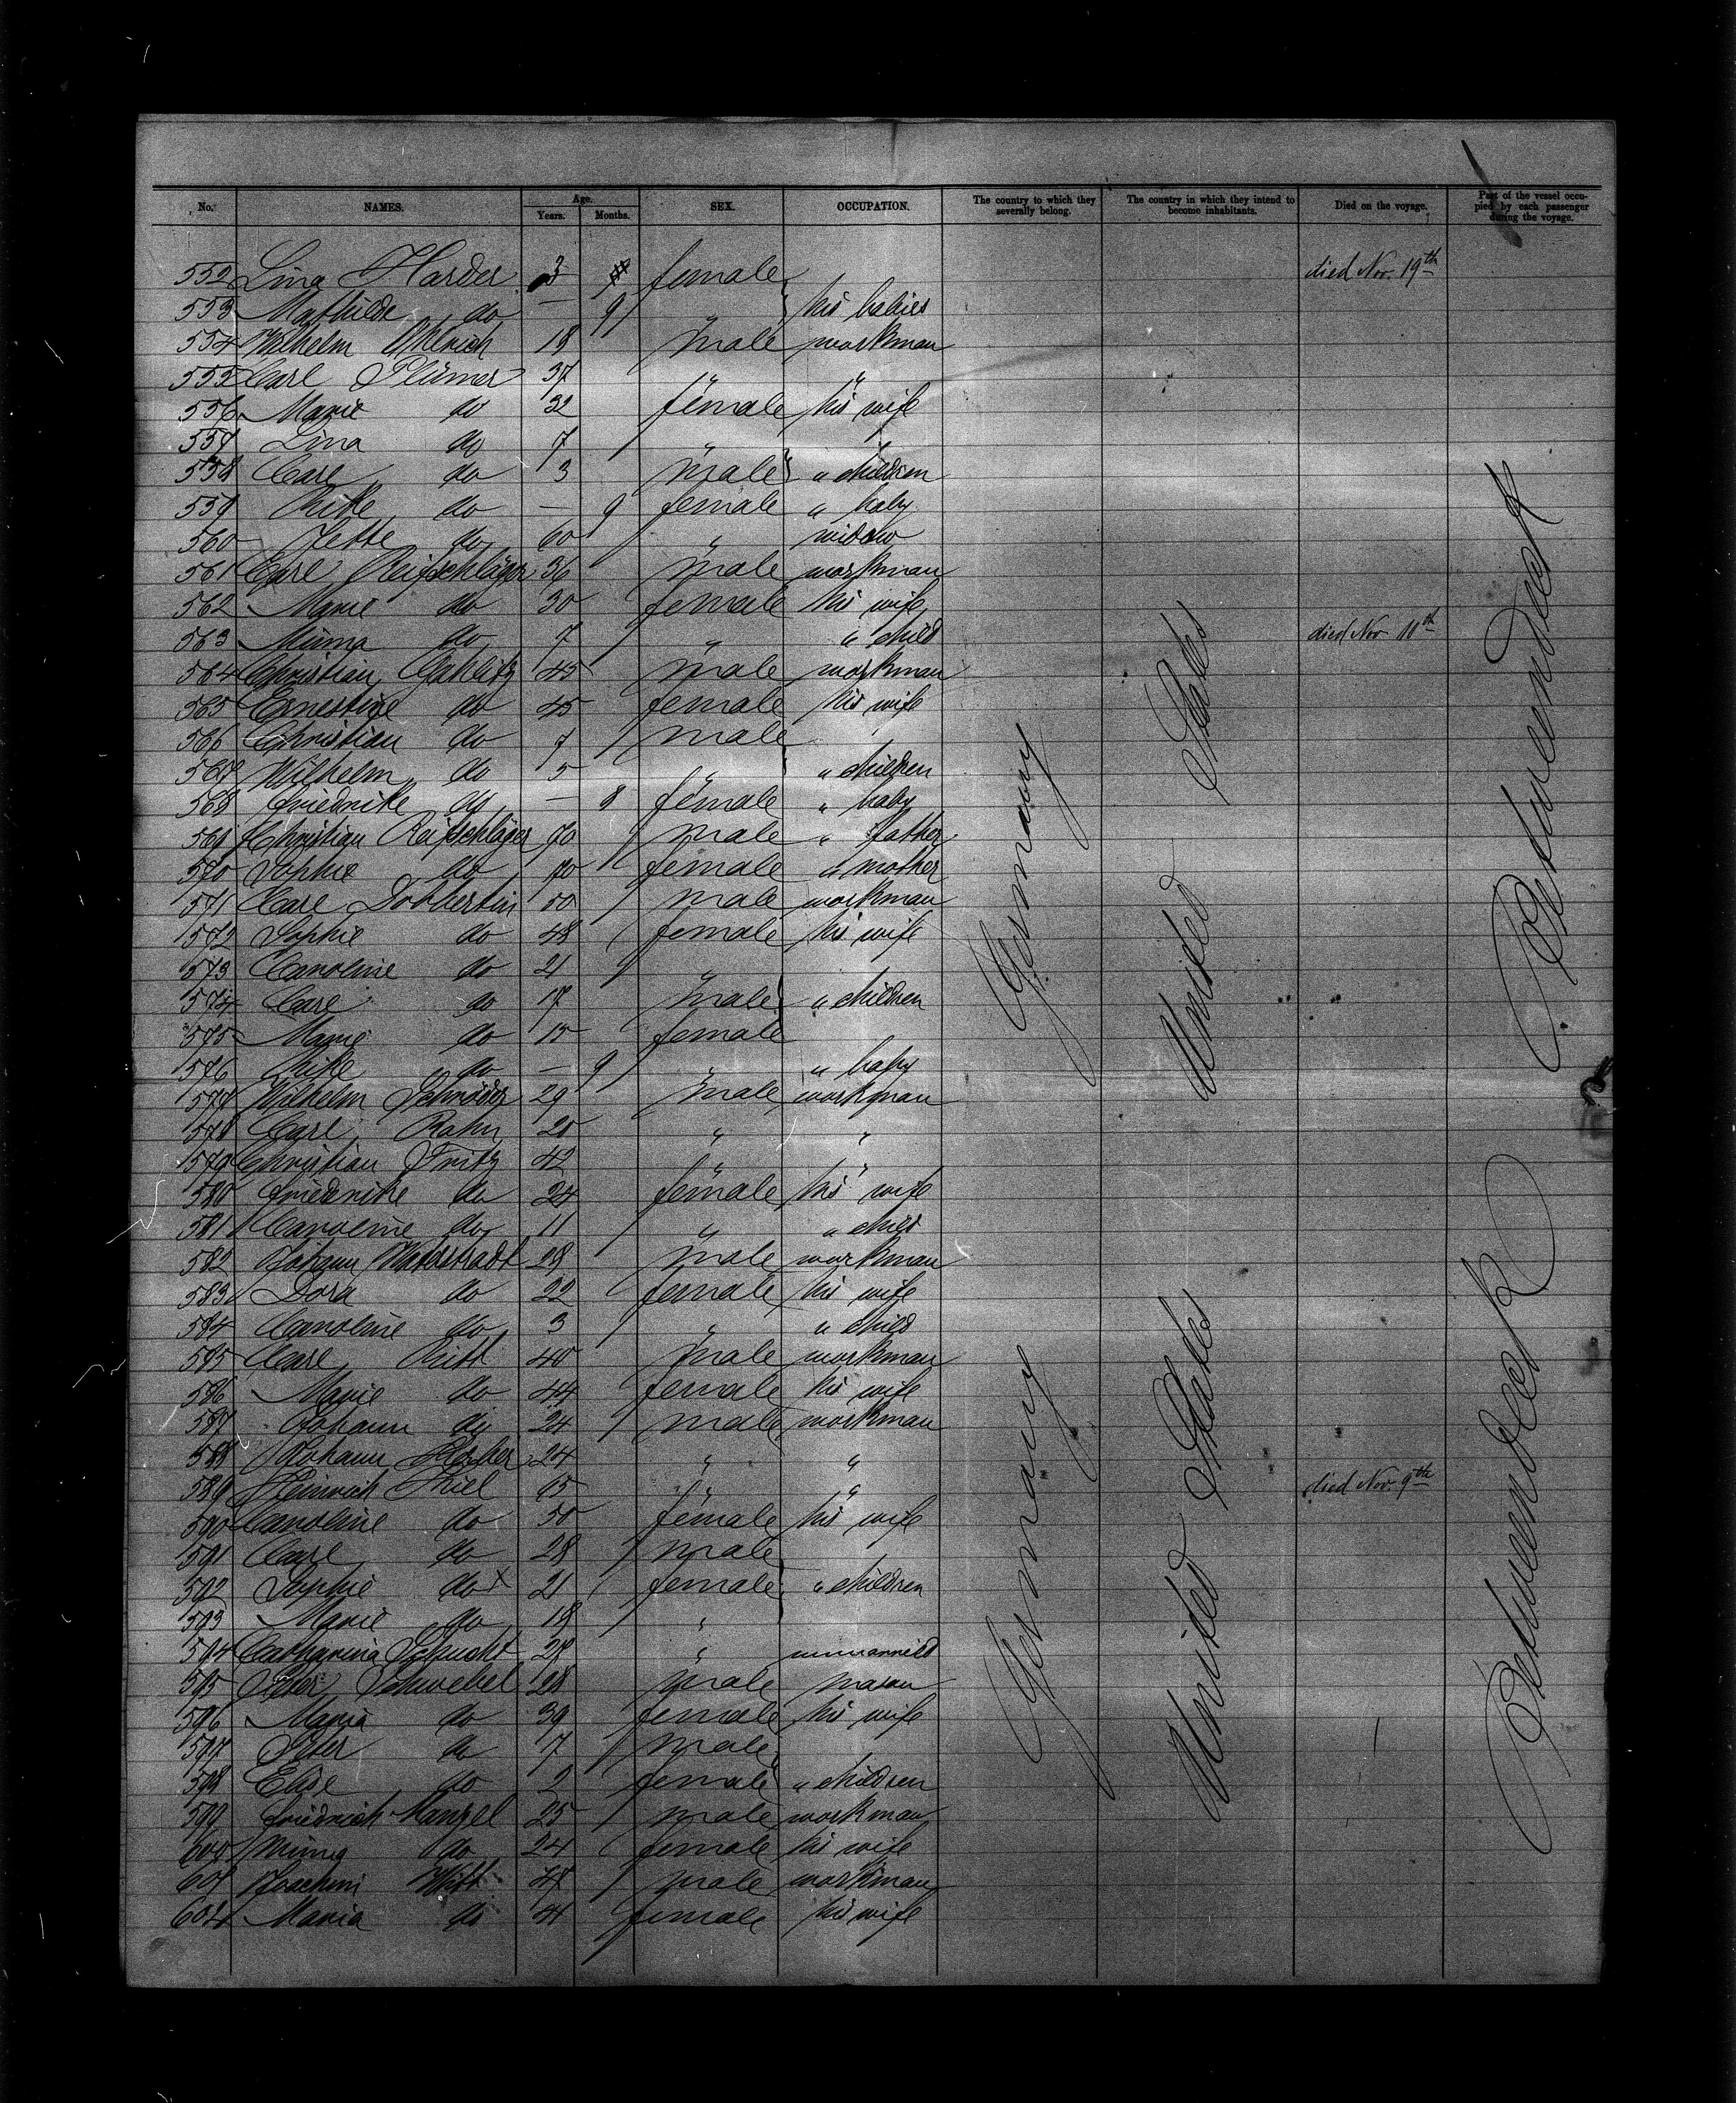 No. NAMES. Age. Years. Months. SEX. OCCUPATION. The country to which they severally belong. The country in which they intend to become inhabitants. Died on the voyage. Part of the vessel occupied by each passenger during the voyage.
552 Lina Harder 3 female died Nov. 19th
553 Mathilde do — 9 " his babies
554 Wilhelm 18 male workman
555 Carl Plümer 37 " "
556 Marie do 32 female his wife
557 Lina do 7 "
558 Carl do 3 male " children
559 Rike do — 9 female " baby
560 Jette do 60 " widow
561 Carl Reifschläger 36 male workman
562 Marie do 30 female his wife
563 Minna do 7 " " child died Nov 10th
564 Christian Gahlitz 45 male workman
565 Ernestine do 45 female his wife
566 Christian do 7 male
567 Wilhelm do 5 " " children
568 Friedrike do — 8 female " baby
569 Christian Reifschläger 70 male " father
570 Sophie do 70 female " mother
571 Carl Dobbertin 50 male workman
572 Sophie do 48 female his wife
573 Caroline do 21 "
574 Carl do 17 male " children
575 Marie do 15 female
576 Rike do — 9 " " baby
577 Wilhelm Schröder 29 male workman
578 Carl Rahn 20 " "
579 Christian Fritz 42 " "
580 Friedrike do 24 female his wife
581 Caroline do 11 " " child
582 Johann 28 male workman
583 Dora do 22 female his wife
584 Caroline do 3 " " child
585 Carl 40 male workman
586 Marie do 44 female his wife
587 Johann do 24 male workman
588 Johann 24 " "
589 Heinrich Thiel 65 " " died Nov. 9th
590 Caroline do 50 female his wife
591 Carl do 28 male
592 Sophie do x 21 female " children
593 Marie do 18 "
594 Catharina Schucht 28 " unmarried
595 Peter Schwebel 28 male mason
596 Maria do 39 female his wife
597 Peter do 7 male
598 Elise do 2 female " children
599 Friedrich Manzel 25 male workman
600 Minna do 24 female his wife
601 Joachim Witt male workman
602 Maria do 41 female his wife
Germany
United States
Betweendeck
Germany
United States
Betweendeck